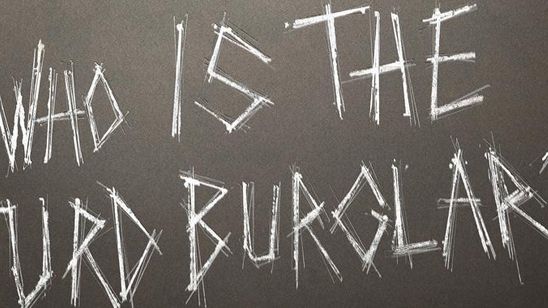 WHO IS THE
URD BURGLAR